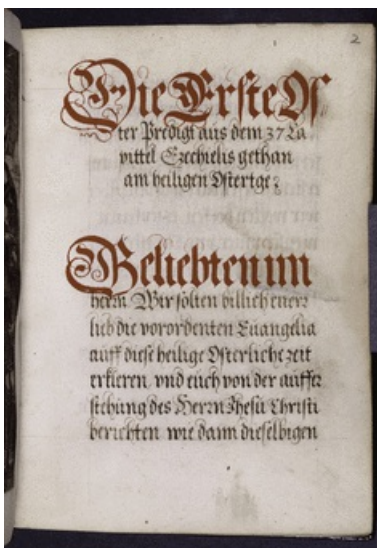 2
Die Erste Os
ter Predigt aus dem 37 Ca
pittel Ezechielis gethan
am heiligen Ostertge:
Geliebten im
herrn Wir solten billich ewer
lieb die vorordenten Euangelia
auff diese heilige Osterliche zeit
erkleren vnd euch von der auffer
stehung des Herrn Jhesu Christi
berichten wie dann dieselbigen